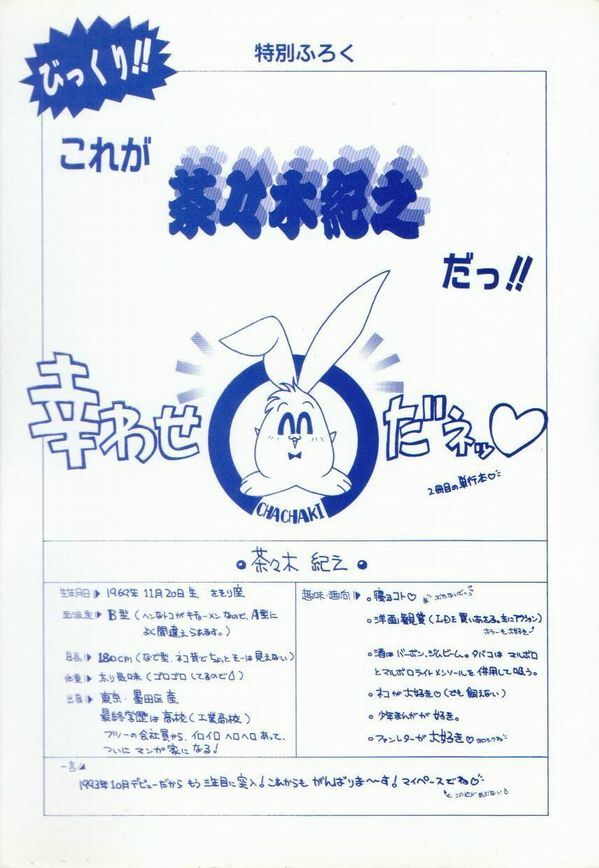 びっくり!!
特別ふろく
これが
茶々木紀之
だっ!!
幸わせ
だネッ♡
CHACHAKI
2冊目の単行本♡
・茶々木 紀之・
生年月日▶ 1969年 11月20日生 さそり座
血液型▶ B型(ヘンなトコがキチョーメンなので、A型に
よく間違えられます。)
身長▶ 180cm(なで型、ネコ背でちょっとそーは見えない)
体重▶ 太り気味(ゴロゴロしてるので)
出身▶ 東京・墨田区産
最終学歴は高校(工業高校)
フツーの会社員から、イロイロヘロヘロあって、
ついにマンガ家になる!
趣味・趣向▶ 。寝るコト♡
。洋画観賞(LDを買いあさる。主にアクション)
ホラーも大好き
。酒はバーボン、ジムビーム。タバコは マルボロ
とマルボロライトメンソールを併用して吸う。
。ネコが大好き♡(でも飼えない)
。少年まんがが好き。
。ファンレターが大好き♡ヨロシクね
一言
1993年10月デビューだから もう三年目に突入!これからも がんばりま〜す!マイペースでね♡